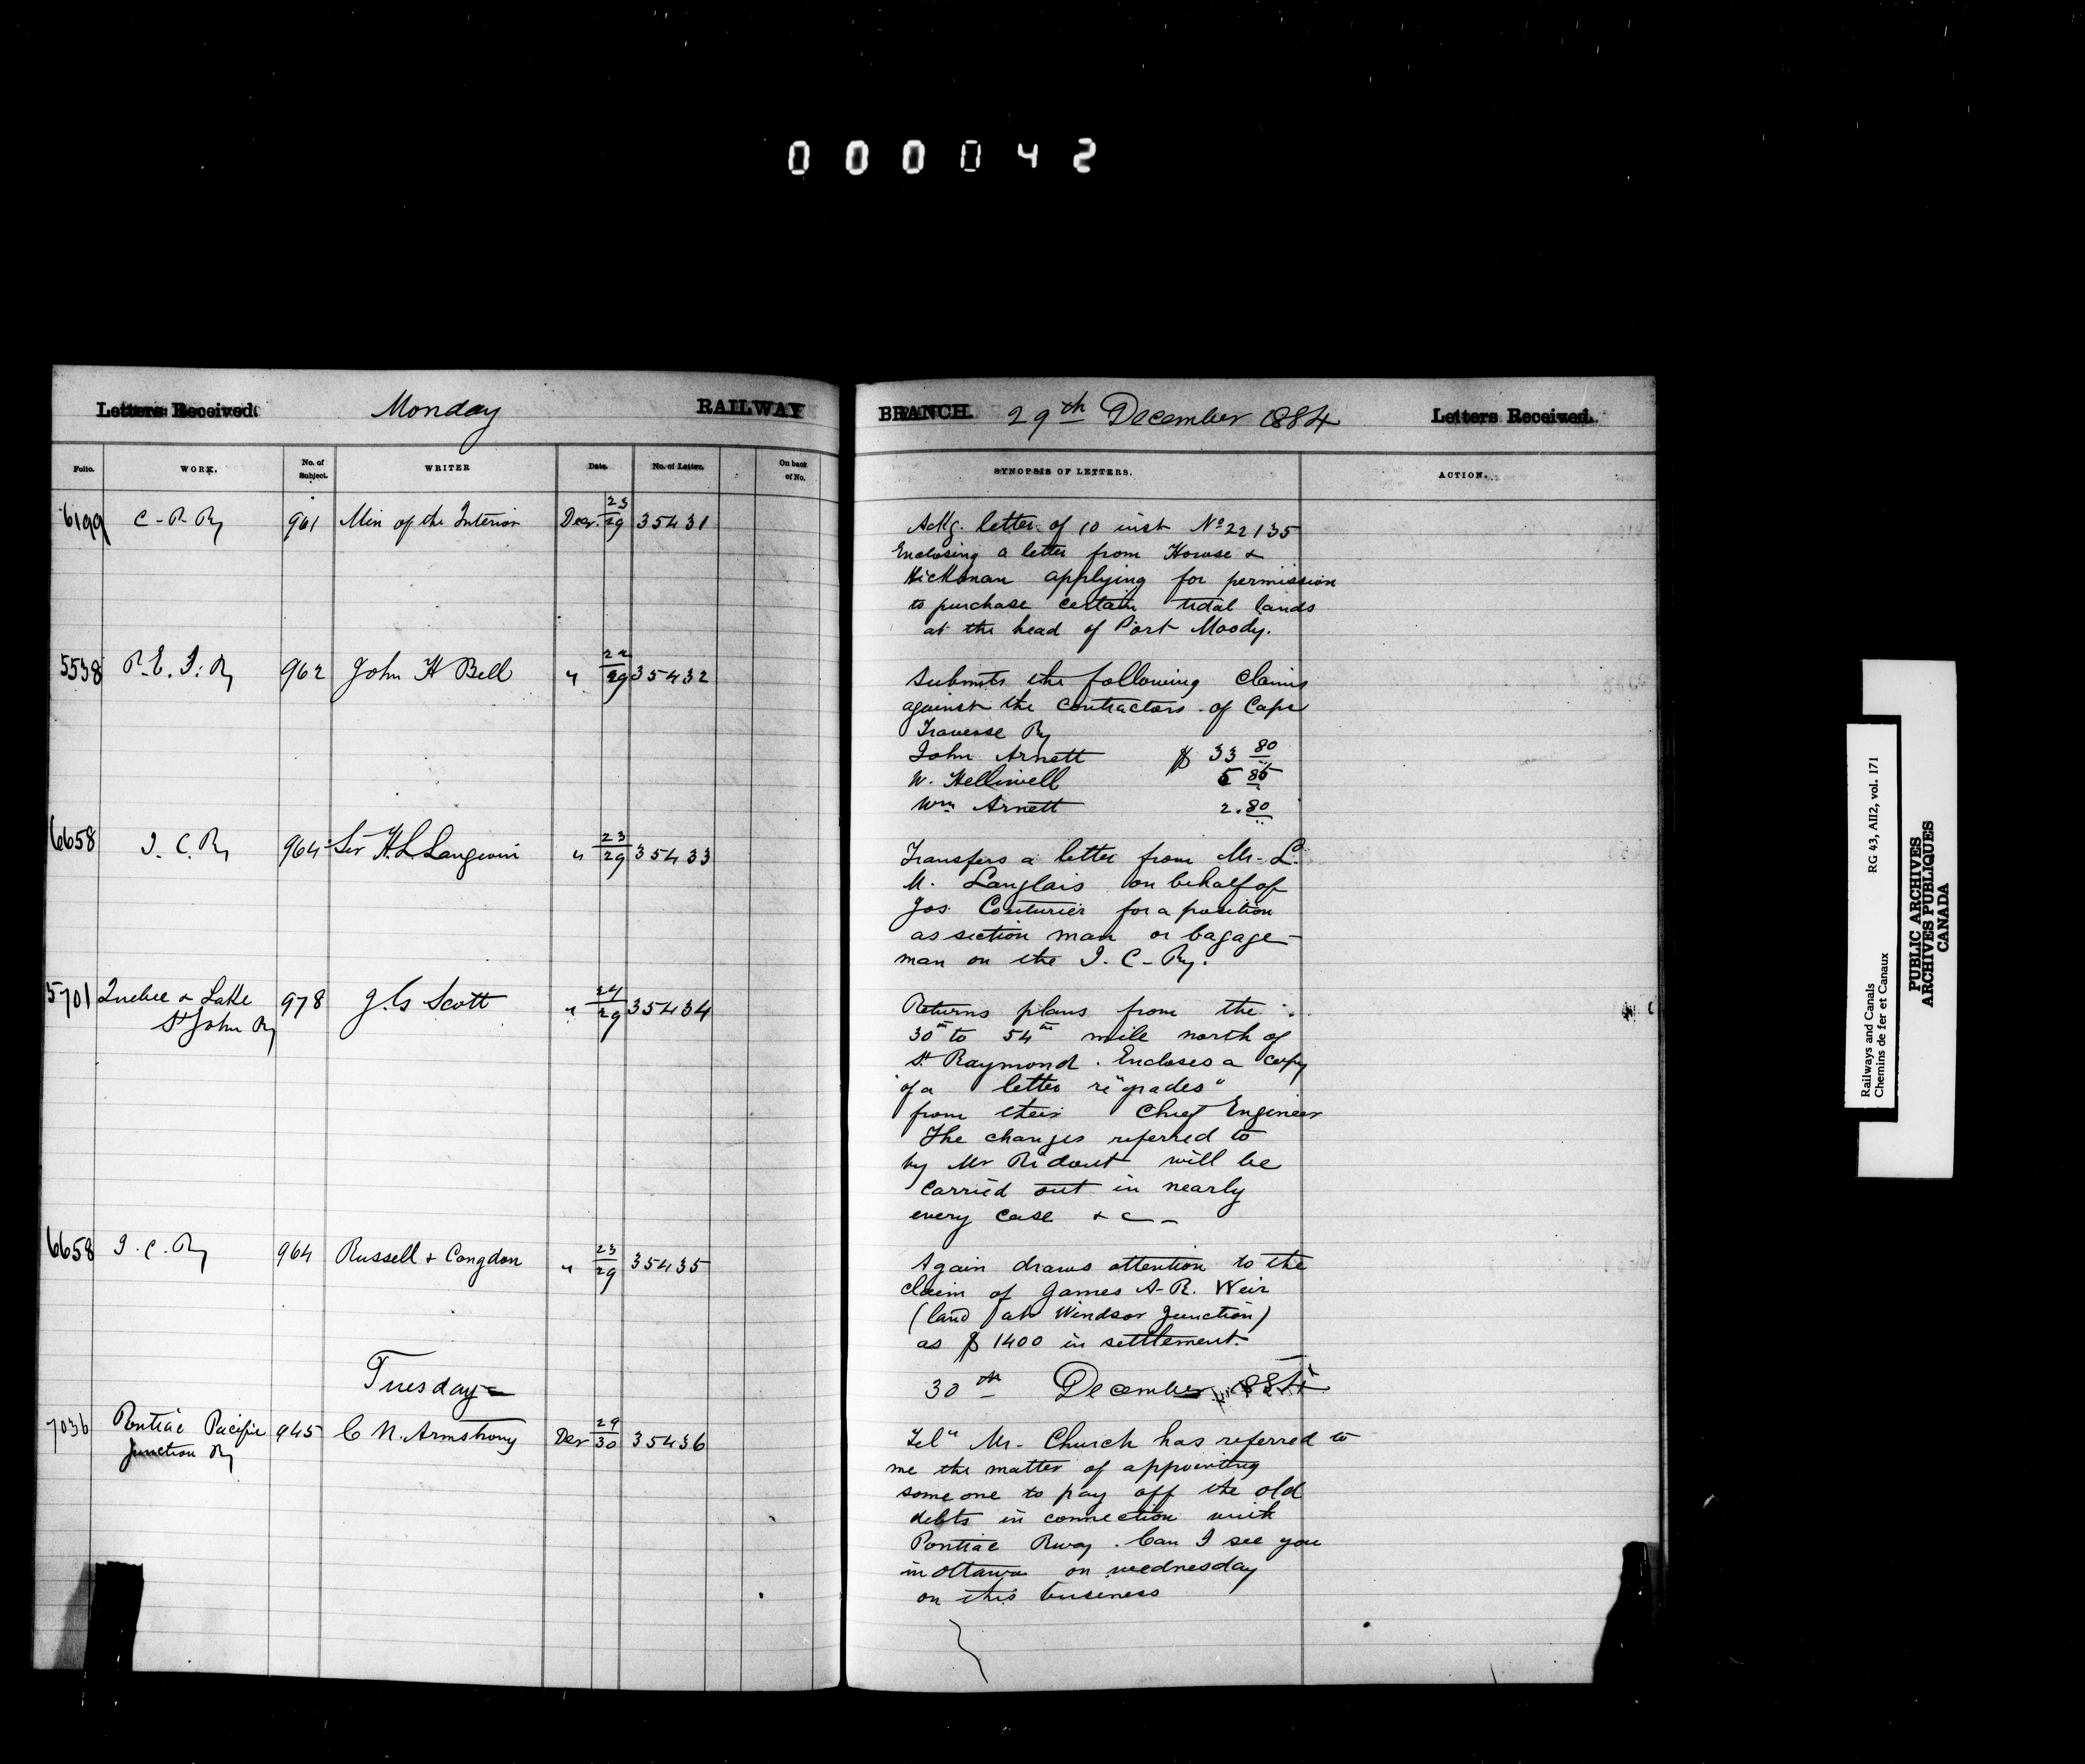 000042
Letters Received. Monday RAILWAY
BRANCH. 29th December 1884 Letters Received.
Folio. WORK. No. of Subject. WRITER Date. No. of Letter. On back of No.
SYNOPSIS OF LETTERS. ACTION.
6199 C-P-Ry 961 Min of the Interior Decr. 23/29 35431
Ackg. letter of 10 inst No 22135
Enclosing a letter from Howse &
Hickman applying for permission
to purchase certain tidal lands
at the head of Port Moody.
5538 P.E.I.Ry 962 John H Bell " 22/29 35432
Submits the following claims
against the contractors of Cape
Traverse Ry
John Arnett $ 33 80
W. Helliwell 5 85
Wm Arnett 2.80
6658 I.C.Ry 964 Sir H L Langevin " 23/29 35433
Transfers a letter from Mr. L.
M. Langlais on behalf of
Jos. Couturier for a position
as section man or bagage-
man on the I.C-Ry.
5701 Quebec & Lake 978 J.G Scott " 24/29 35434
St John Ry
Returns plans from the
30th to 54th mile north of
St. Raymond. Encloses a copy
of a letter re "grades"
from their Chief Engineer
The changes referred to
by Mr Ridout will be
carried out in nearly
every case &c -
6658 I.C.Ry 964 Russell & Congdon " 23/29 35435
Again draws attention to the
claim of James A-R. Weir
(land at Windsor Junction)
as $1400 in settlement.
Tuesday
30th December 1884
7036 Pontiac Pacific 945 C N. Armstrong Decr 29/30 35436
Junction Ry
Teln Mr. Church has referred to
me the matter of appointing
some one to pay off the old
debts in connection with
Pontiac Rway. Can I see you
in Ottawa on wednesday
on this business
Railways and Canals RG 43, AII2, vol. 171
Chemins de fer et Canaux
PUBLIC ARCHIVES
ARCHIVES PUBLIQUES
CANADA